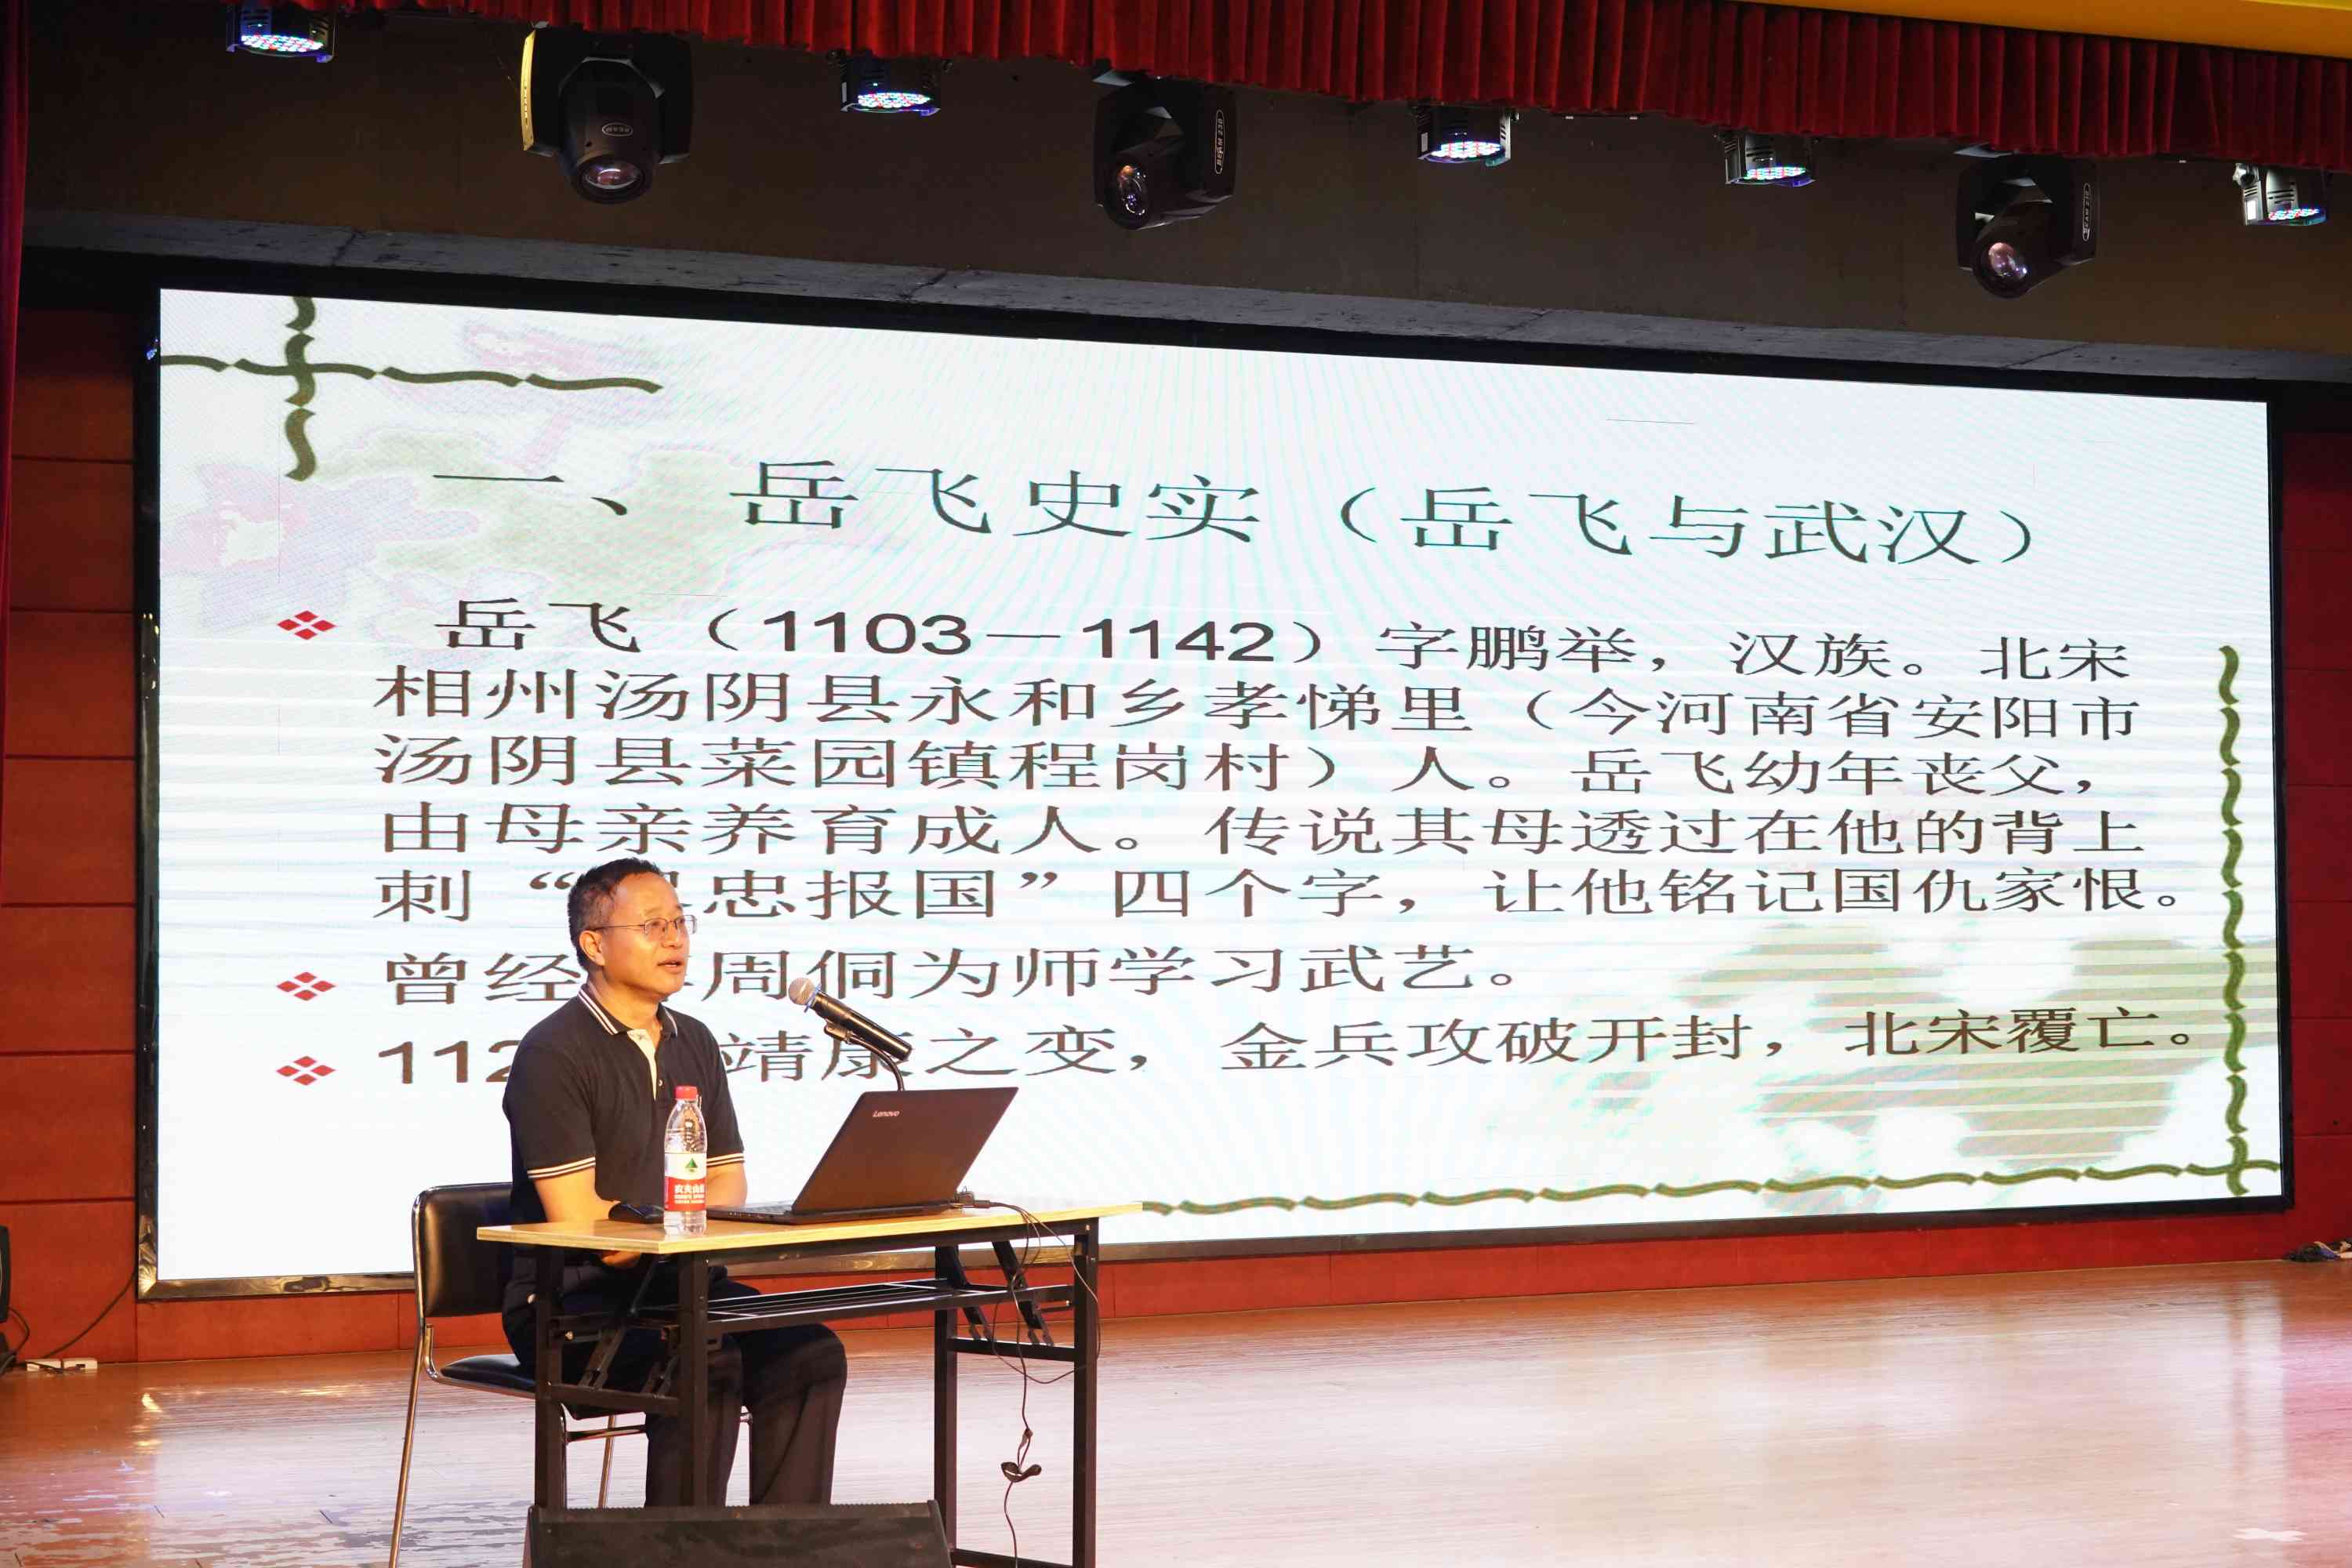 一、岳飞史实（岳飞与武汉）
岳飞（1103－1142）字鹏举，汉族。北宋
相州汤阴县永和乡孝悌里（今河南省安阳市
汤阴县菜园镇程岗村）人。岳飞幼年丧父，
由母亲养育成人。传说其母透过在他的背上
刺“忠报国”四个字，让他铭记国仇家恨。
曾经周侗为师学习武艺。
112靖康之变，金兵攻破开封，北宋覆亡。
Lenovo